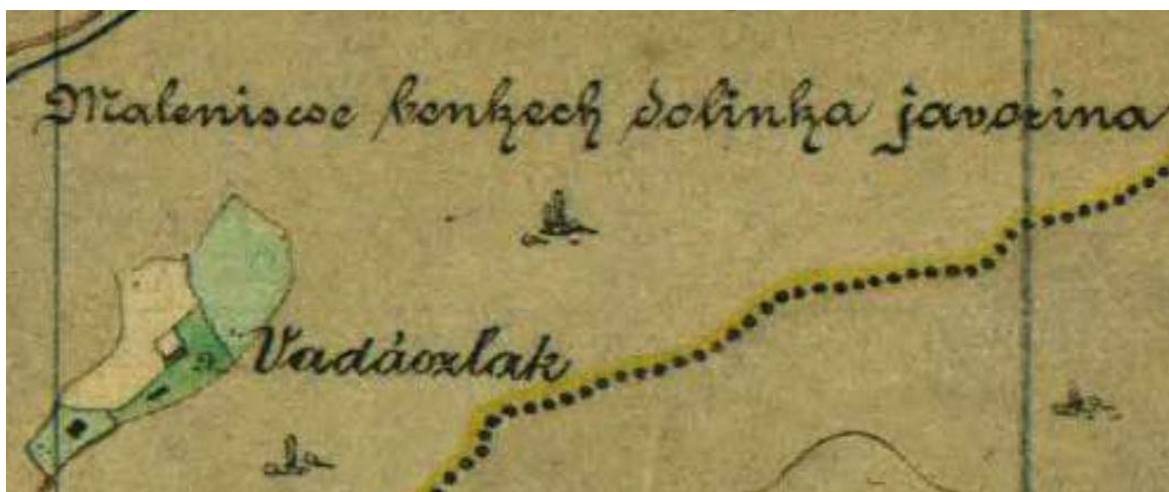 Maleniscse benkech dolinka javorina
Vadászlak